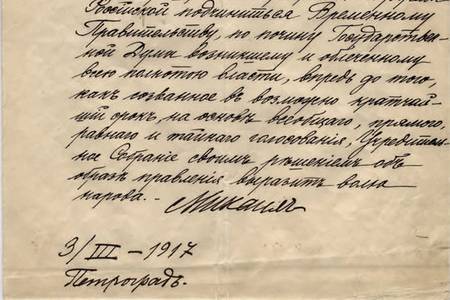 Россiйской подчиниться Временному
Правительству, по почину Государствен-
ной Думы возникшему и облеченному
всею полнотою власти, впредь до того,
какъ созванное въ возможно кратчай-
шiй срокъ, на основѣ всеобщаго, прямого,
равнаго и тайнаго голосованiя, Учредитель-
ное Собранiе своимъ рѣшенiемъ объ
образѣ правленiя выразитъ волю
народа. -
Михаилъ
3/III - 1917
Петроградъ.